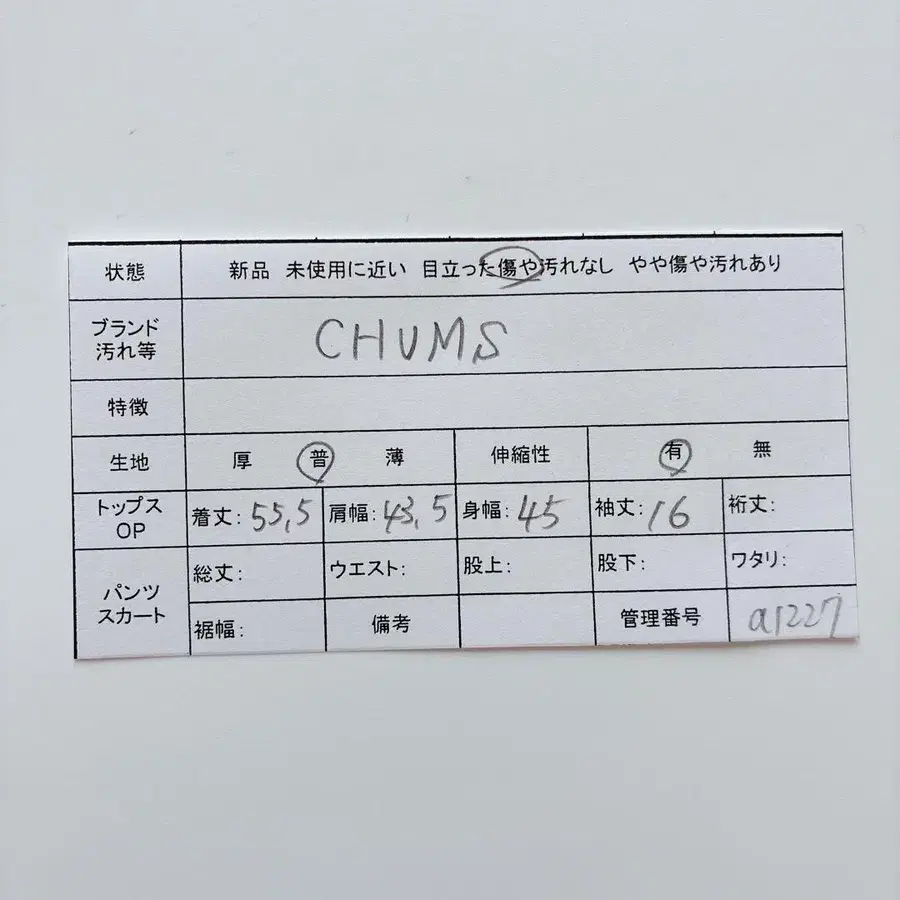 状態 新品 未使用に近い 目立った傷や汚れなし やや傷や汚れあり
ブランド
汚れ等 CHUMS
特徴
生地 厚 普 薄 伸縮性 有 無
トップス
OP 着丈: 55,5 肩幅: 43,5 身幅: 45 袖丈: 16 裄丈:
パンツ
スカート 総丈: ウエスト: 股上: 股下: ワタリ:
裾幅: 備考 管理番号 a1227